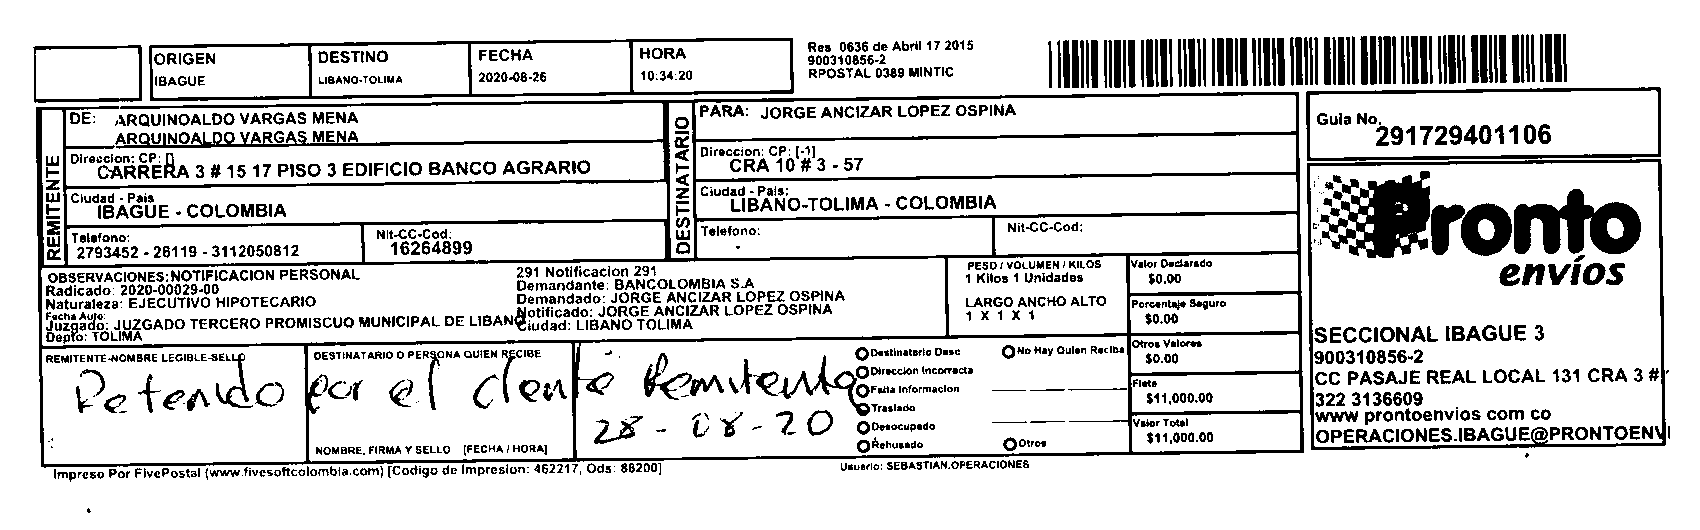 ORIGEN
IBAGUE
DESTINO
LIBANO-TOLIMA
FECHA
2020-08-26
HORA
10:34:20
Res 0636 de Abril 17 2015
900310856-2
RPOSTAL 0389 MINTIC
REMITENTE
DE: ARQUINOALDO VARGAS MENA
ARQUINOALDO VARGAS MENA
Direccion: CP: []
CARRERA 3 # 15 17 PISO 3 EDIFICIO BANCO AGRARIO
Ciudad - Pais
IBAGUE - COLOMBIA
Telefono:
2793452 - 26119 - 3112050812
Nit-CC-Cod:
16264899
DESTINATARIO
PARA: JORGE ANCIZAR LOPEZ OSPINA
Direccion: CP: [-1]
CRA 10 # 3 - 57
Ciudad - Pais:
LIBANO-TOLIMA - COLOMBIA
Telefono:
Nit-CC-Cod:
Guia No.
291729401106
Pronto
envíos
SECCIONAL IBAGUE 3
900310856-2
CC PASAJE REAL LOCAL 131 CRA 3 #
322 3136609
www prontoenvios com co
OPERACIONES.IBAGUE@PRONTOENVI
OBSERVACIONES:NOTIFICACION PERSONAL
Radicado: 2020-00029-00
Naturaleza: EJECUTIVO HIPOTECARIO
Fecha Auto:
Juzgado: JUZGADO TERCERO PROMISCUO MUNICIPAL DE LIBANO
Depto: TOLIMA
291 Notificacion 291
Demandante: BANCOLOMBIA S.A
Demandado: JORGE ANCIZAR LOPEZ OSPINA
Notificado: JORGE ANCIZAR LOPEZ OSPINA
Ciudad: LIBANO TOLIMA
PESO / VOLUMEN / KILOS
1 Kilos 1 Unidades
LARGO ANCHO ALTO
1 X 1 X 1
Valor Declarado
$0.00
Porcentaje Seguro
$0.00
Otros Valores
$0.00
Flete
$11,000.00
Valor Total
$11,000.00
REMITENTE-NOMBRE LEGIBLE-SELLO
DESTINATARIO O PERSONA QUIEN RECIBE
Retenido por el cliente Remitente
28-08-20
NOMBRE, FIRMA Y SELLO [FECHA / HORA]
Destinatario Desc
Direccion Incorrecta
Falta Informacion
Traslado
Desocupado
Rehusado
No Hay Quien Reciba
Otros
Impreso Por FivePostal (www.fivesoftcolombia.com) [Codigo de Impresion: 462217, Ods: 88200]
Usuario: SEBASTIAN.OPERACIONES